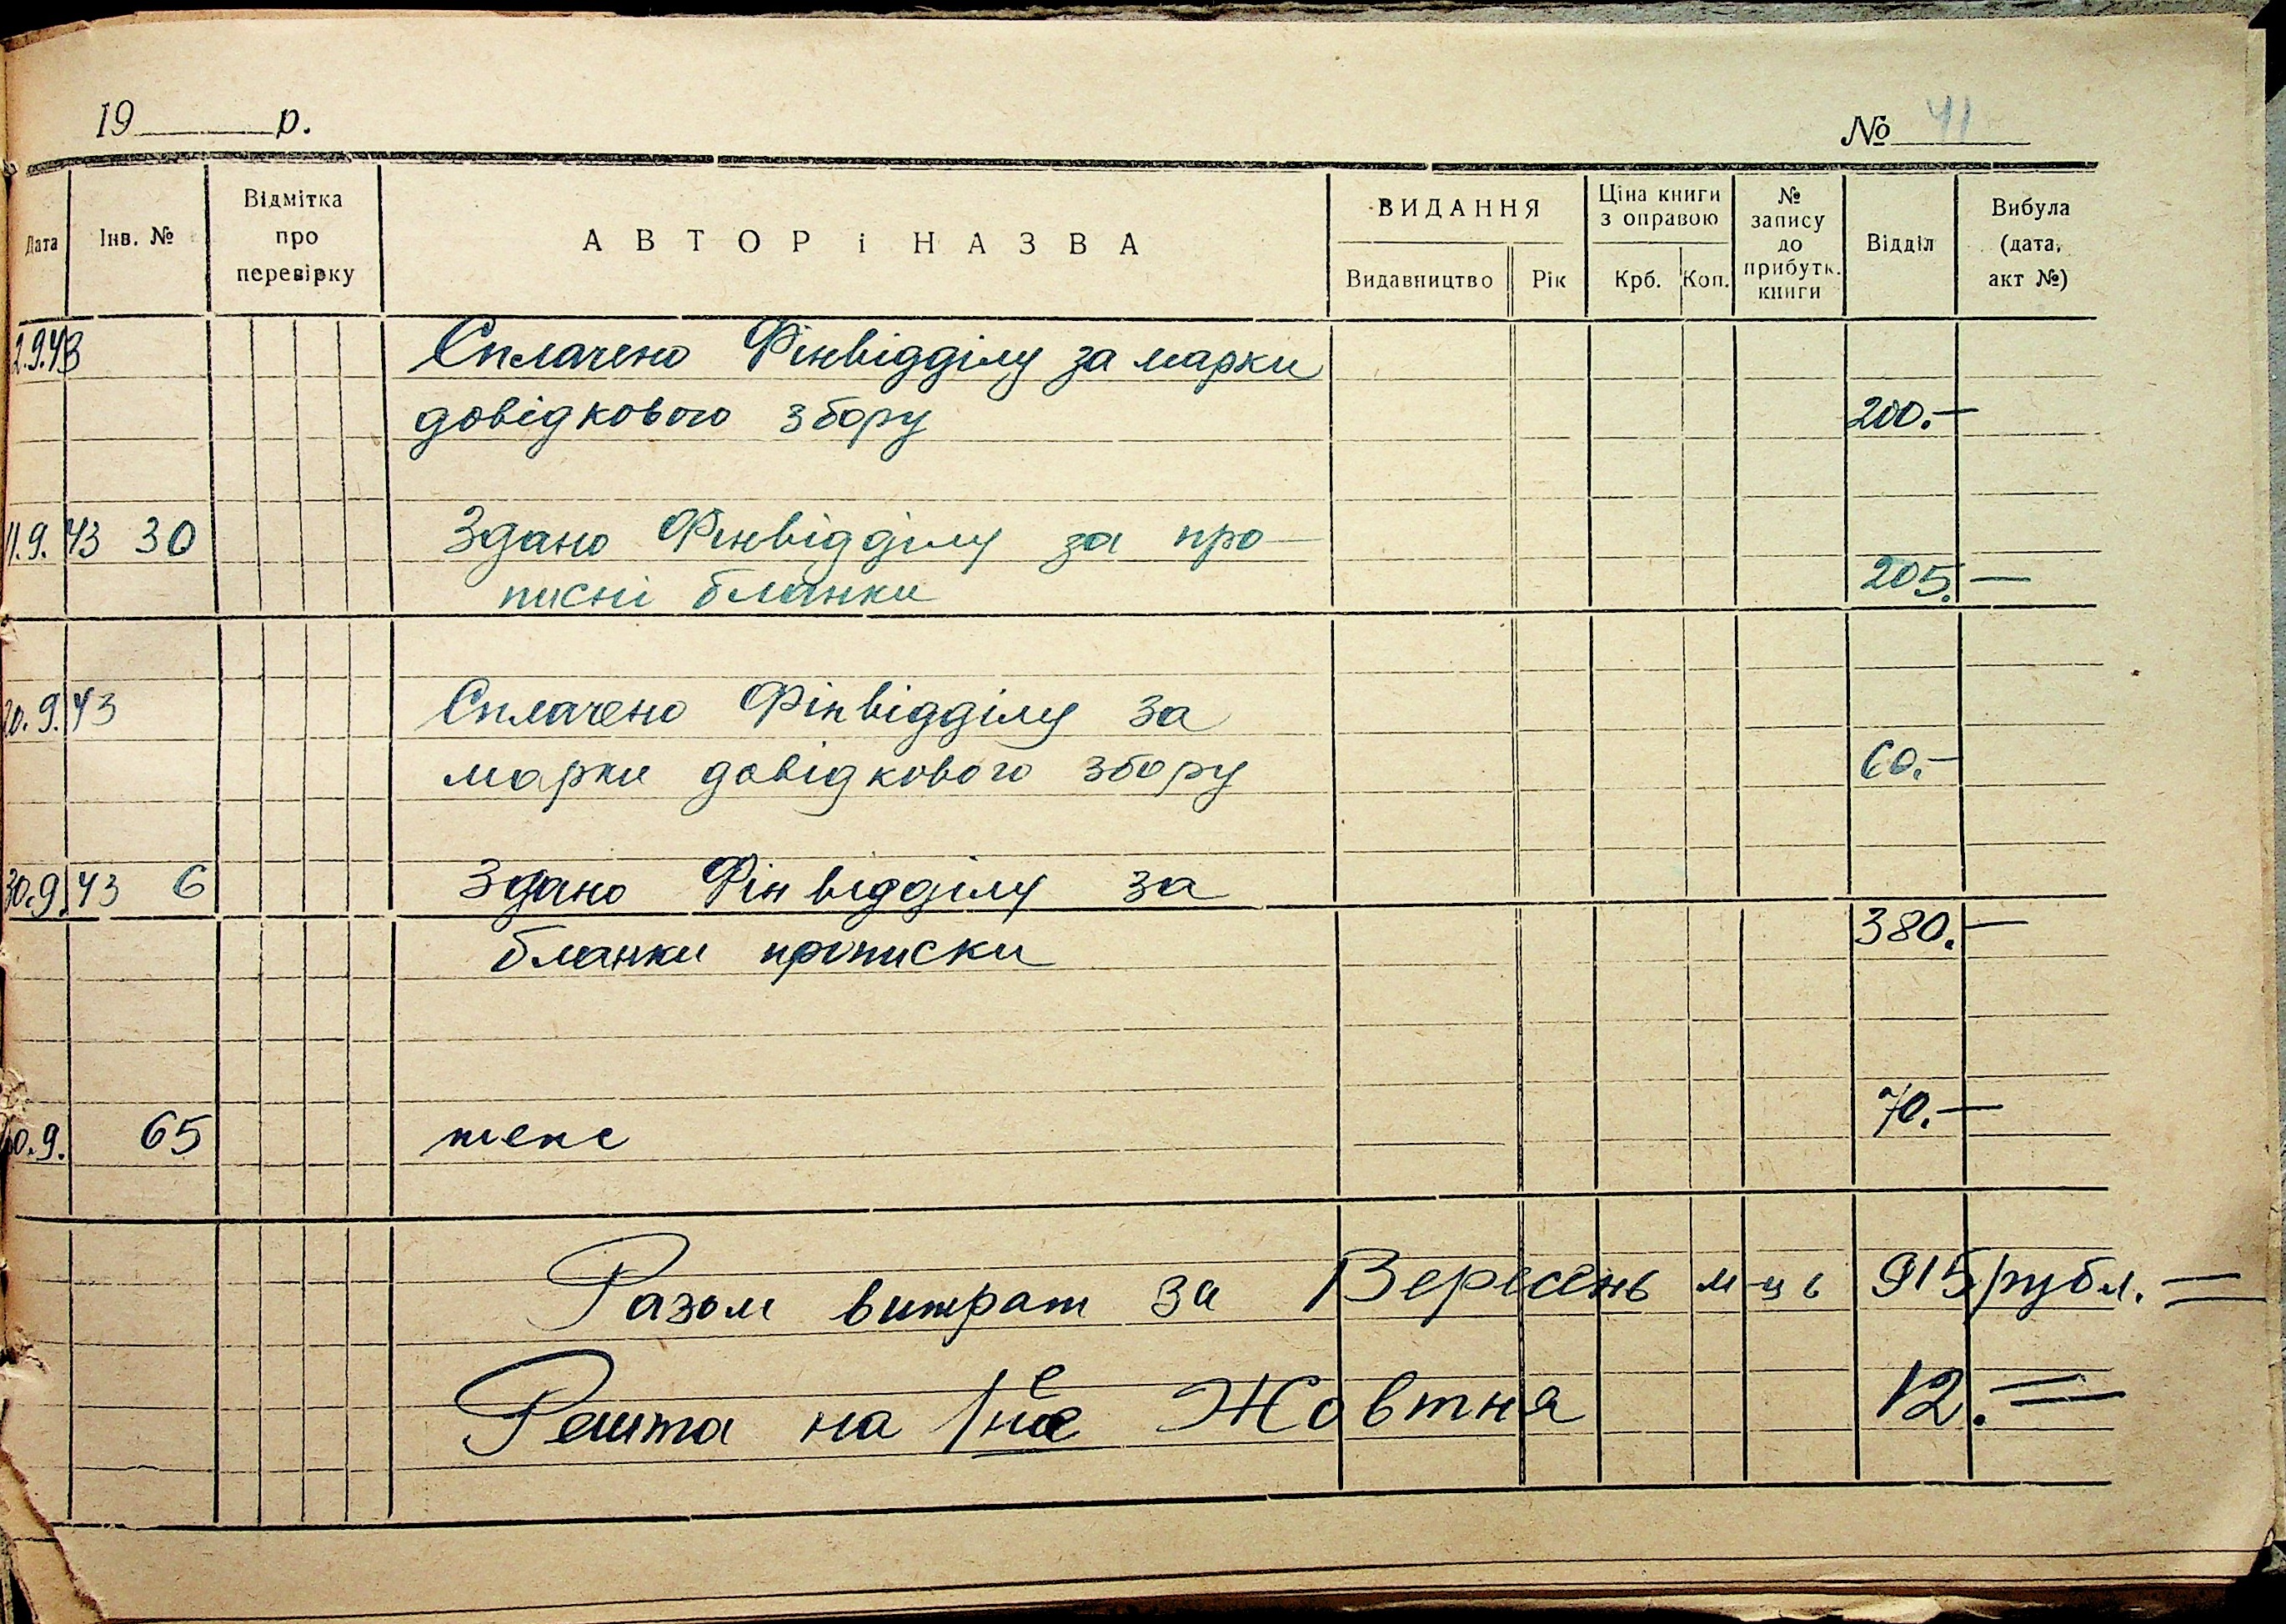 19 р.
№ 41
Дата
Інв. №
Відмітка
про
перевірку
АВТОР і НАЗВА
ВИДАННЯ
Видавництво
Рік
Ціна книги
з оправою
Крб.
Коп.
№
запису
до
прибутк.
книги
Відділ
Вибула
(дата,
акт №)
2.9.43 Сплачено Фінвідділу за марки
довідкового збору 200.—
11.9.43 30 Здано Фінвідділу за про—
писні бланки 205.—
20.9.43 Сплачено Фінвідділу за
марки довідкового збору 60.—
30.9.43 6 Здано Фінвідділу за
бланки прописки 380.—
30.9. 65 теж 70.—
Разом витрат за Вересень м-ць 915 рубл. =
Решта на 1не Жовтня 12. =